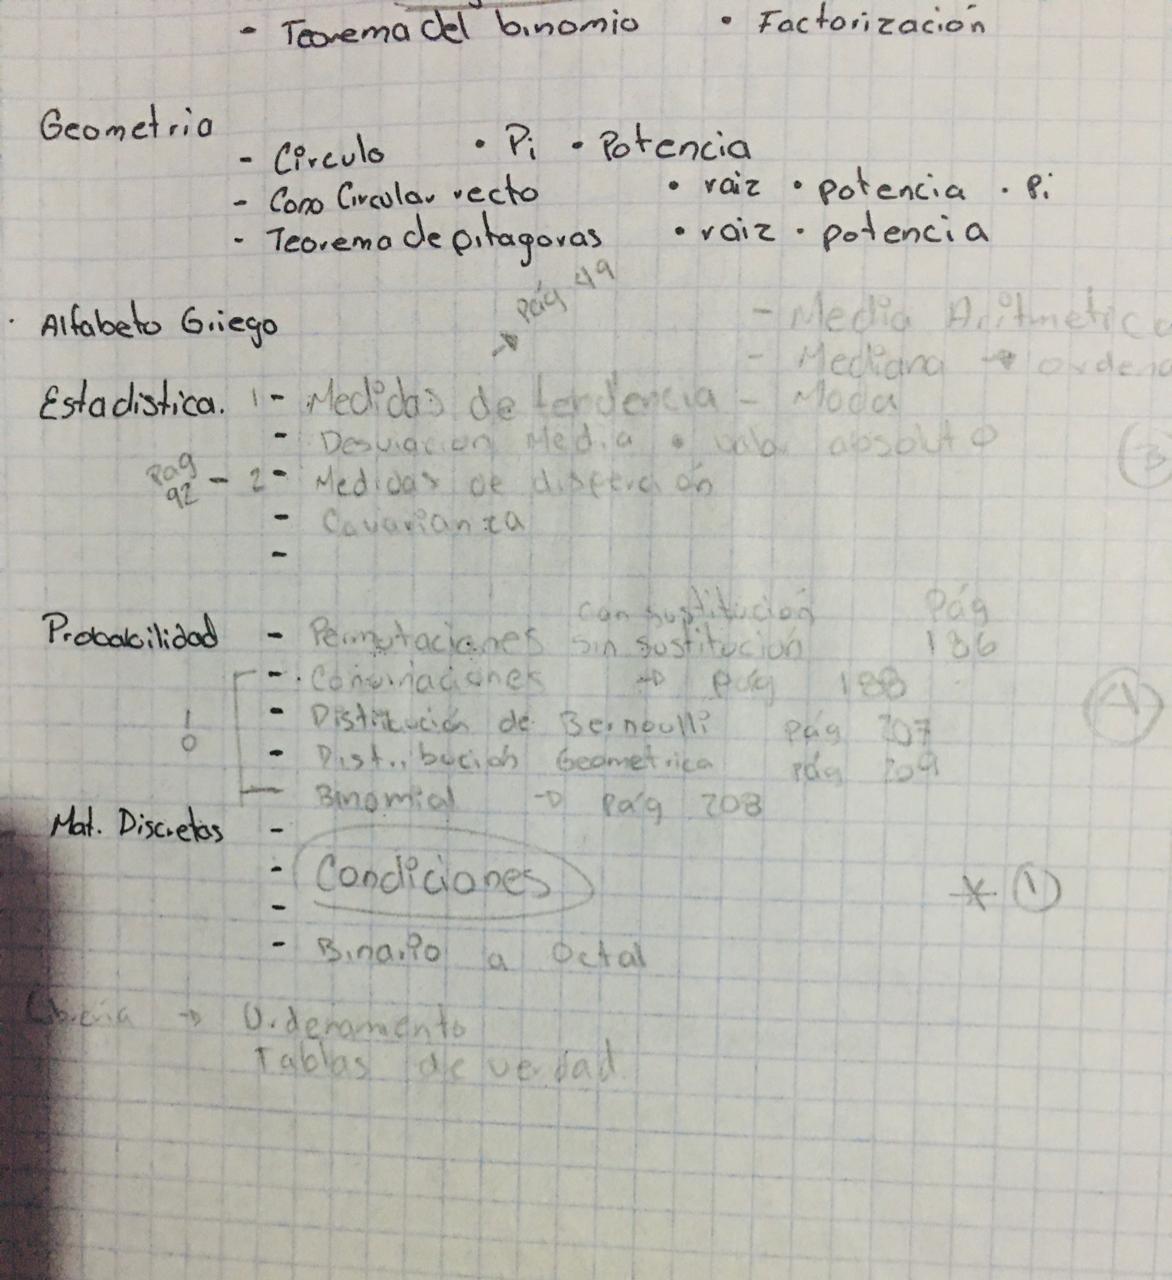 - Teorema del binomio • Factorización
Geometria
- Circulo • Pi • Potencia
- Cono Circular recto • raiz • potencia • Pi
- Teorema de pitagoras • raiz • potencia
Pág 49
· Alfabeto Griego
- Media Aritmetica
- Mediana → ordena
Estadistica. 1 - Medidas de tendencia - Moda
- Desviacion Media • valor absoluto
Pag 92 - 2 - Medidas de dispercion
- Covarianza
-
con sustitución Pág
Probabilidad - Permutaciones sin sustitución 186
- . Convinaciones → pág 188
! 0
- Distribución de Bernoulli pág 207
- Distribución Geometrica pág 209
Binomial → Pág 208
Mat. Discretas -
- Condiciones * 1
-
- Binario a Octal
Libreria → Ordenamento
Tablas de verdad